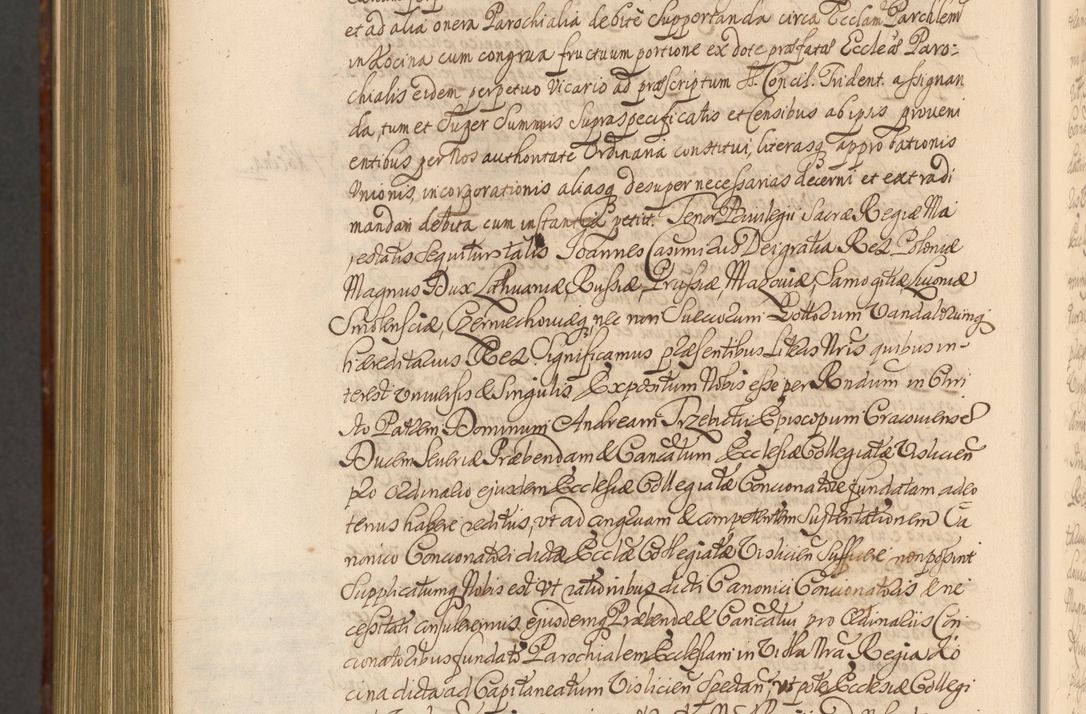 et ad alia onera Parochialia debitè supportanda circa Ecclam Parchlem
in Kocina cum congrua fructuum portione ex dote præfatæ Ecclæ Paro-
chialis eidem perpetuo Vicario ad præscriptum S. Concil. Trident. assignan
da, tum et super summis supraspecificatis et Censibus ab ipsis proveni
entibus per Nos authoritate Ordinaria constitui, literasq approbationis
Unionis, incorporationis aliasq desuper necessarias decerni et extradi
mandari debita cum instantia petiit. Tenor Privilegii Sacræ Regiæ Ma
jestatis sequitur talis Joannes Casimirus Dei gratia Rex Poloniæ
Magnus Dux Lithuaniæ, Russiæ, Prussiæ, Mazoviæ, Samogitiæ, Livoniæ
Smolensciæ, Czerniechoviæq, nec non Suecorum Gottorum Vandalorumq
hæreditarius Rex. Significamus præsentibus Literis Nris quibus in-
terest Universis & Singulis Expositum Nobis esse per Rndum in Chri
sto Patrem Dominum Andream Trzebicki Episcopum Cracoviensē
Ducem Severiæ Præbendam & Cancatum Ecclesiæ Collegiatæ Visliciēn
pro ordinario ejusdem Ecclesiæ Collegiatæ Concionatore fundatam adeo
tenus habere reditus, ut ad congruam & competentem sustentationem Ca
nonico Concionatori dictæ Ecclæ Collegiatæ Visliciēn sufficere non possint
Supplicatumq Nobis est ut rationibus dicti Canonici Concionatoris & ne
cessitati consuleremus, ejusdemq Præbendæ & Cancatui pro Ordinariis Con
cionatoribus fundato Parochialem Ecclesiam in Villa Nra Regia Ko
cina dicta ad Capitaneatum Visliciēn spectan, ut pote Ecclesiæ Collegi